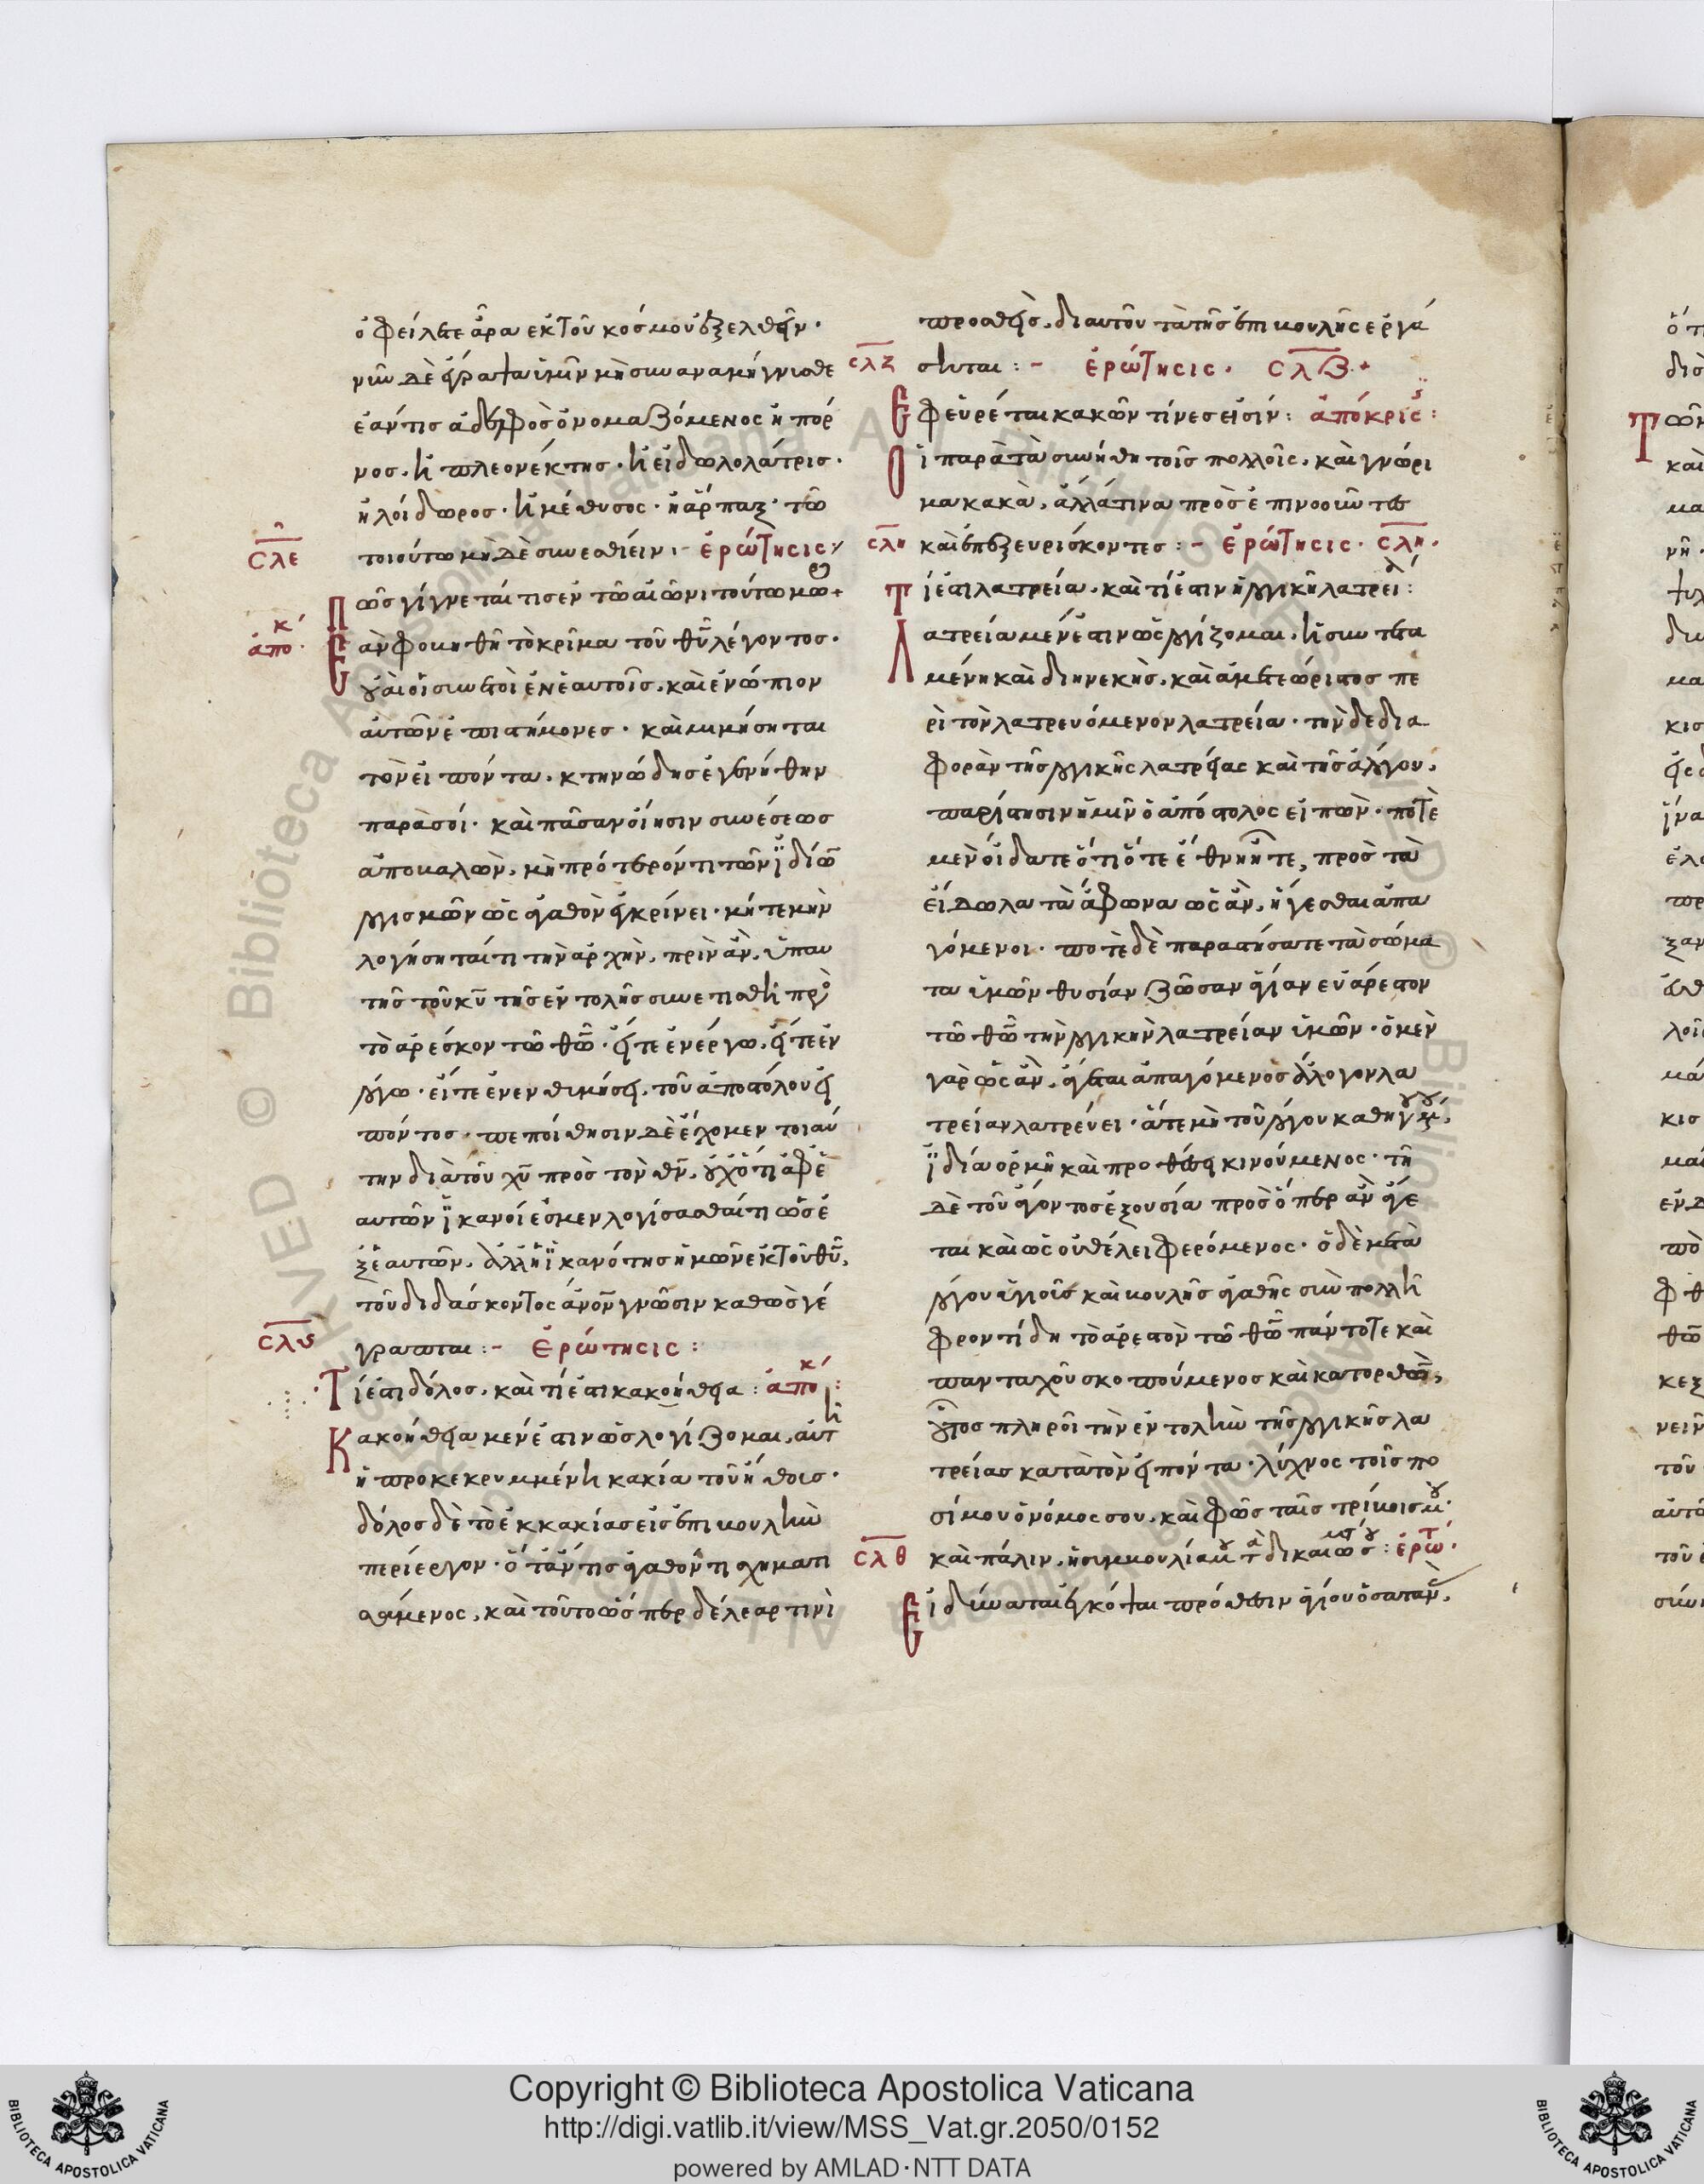 ὀφείλετε ἄρα ἐκ τοῦ κόσμου ἐξελθεῖν·
νῦν δὲ ἔγραψα ὑμῖν μὴ συναναμήγνυσθε
ἐάν τις ἀδελφὸς ὀνομαζόμενος ἢ πόρ
νος· ἢ πλεονέκτης· ἢ εἰδωλολάτρις·
ἢ λοίδωρος· ἢ μέθυσος· ἢ ἅρπαξ· τῶ
σλε τοιούτω μὴ δὲ συνεσθίειν:- ἐρώτησις
Πῶς γίγνεταί τις ἐν τῶ αἰῶνι τούτω μω+
ἀποκ Ἐὰν φοβηθῆ τὸ κρῖμα τοῦ θῦ λέγοντος·
οὐαὶ οἱ συνετοὶ ἐν ἑαυτοῖς, καὶ ἐνώπιον
αὐτῶν ἐπιστήμονες· καὶ μιμήσηται
τὸν εἰπόντα, κτηνώδης ἐγενήθην
παρὰ σοί· καὶ πᾶσαν οἴησιν συνέσεως
ἀποβαλὼν, μὴ πρότερόν τι τῶν ἰδίων
λογισμῶν ὡς ἀγαθὸν ἐγκρίνει· μήτε μὴν
λογήσηταί τι τὴν ἀρχὴν, πρὶν ἂν, ὑπ αυ
τῆς τοῦ κῦ τῆς ἐντολῆς συνετισθῆ πρὸ
τὸ ἀρέσκον τῶ θῶ· εἴτε ἐν ἔργω, εἴτε ἐν
λόγω· εἴτε ἐν ἐνθυμήσει, τοῦ ἀποστόλου εἰ
πόντος· πεποίθησιν δὲ ἔχομεν τοιαύ
την διὰ τοῦ χῦ πρὸς τὸν θν, οὐχ ὅτι ἀφ ἑ
αυτῶν ἱκανοί ἐσμεν λογίσασθαί τι ὡς ἐ
ξ ἑαυτῶν, ἀλλ ἡ ἱκανότης ἡμῶν ἐκ τοῦ θῦ,
τοῦ διδάσκοντος ἄνον γνῶσιν καθὼς γέ
σλς γραπται:- Ἐρώτησις:
Τί ἐστι δόλος, καὶ τί ἐστι κακοήθεια: ἀποκ:
Κακοήθεια μέν ἐστιν ὡς λογίζομαι, αὐτ
ἡ προκεκρυμμένη κακία τοῦ ἤθους·
δόλος δὲ τὸ ἐκ κακίας εἰς ἐπιβουλὴν
περίεργον· ὅτάν τις ἀγαθόν τι σχηματι
σάμενος, καὶ τοῦτο ὥσπερ δέλεαρ τινὶ
προσθεὶς, δι αυτοῦ τὰ τῆς ἐπιβουλῆς ἐργά
σλζ σηται:- ἐρώτησις. σλζ+
Ἐφευρέται κακῶν τίνες εἰσίν: ἀπόκρις:
Οἱ παρὰ τὰ συνήθη τοῖς πολλοῖς, καὶ γνώρι
μα κακὰ, ἀλλά τινα πρὸς ἐπινοοῦντες
σλη καὶ ἐπεξευρίσκοντες:- Ἐρώτησις. σλη.
Τί ἐστι λατρεία, καὶ τί ἐστιν ἡ λογικὴ λατρεί:
Λατρεία μέν ἐστιν ὡς λογίζομαι, ἡ συντετα
μένη καὶ διηνεκὴς, καὶ ἀμετεώριστος πε
ρὶ τὸν λατρευόμενον λατρεία· τὴν δὲ δια
φορὰν τῆς λογικῆς λατρείας καὶ τῆς ἀλόγου,
παρίστησιν ἡμῖν ὁ ἀπόστολος εἰπὼν· ποτὲ
μὲν οἴδατε ὅτι ὅτε ἔθνη ἦτε, πρὸς τὰ
εἴδωλα τὰ ἄφωνα ὡς ἂν, ἤγεσθαι ἀπα
γόμενοι· ποτὲ δὲ παραστήσατε τὰ σώμα
τα ὑμῶν θυσίαν ζῶσαν ἁγίαν εὐάρεστον
τῶ θῶ τὴν λογικὴν λατρείαν ὑμῶν· ὁ μὲν
γὰρ ὡς ἂν, ἄγεται ἀπαγόμενος ἄλογον λα
τρείαν λατρεύει· ἅτε μὴ τοῦ λόγου καθηγουμ,
ἰδία ὁρμῆ καὶ προθέσει κινούμενος· τῆ
δὲ τοῦ ἄγοντος ἐξουσία πρὸς ὅπερ ἂν ἄγε
ται καὶ ὡς οὐ θέλει φερόμενος· ὁ δὲ μετὰ
λόγου ὑγιοῦς καὶ βουλῆς ἀγαθῆς σὺν πολλῆ
φροντίδη τὸ ἀρεστὸν τῶ θῶ πάντοτε καὶ
πανταχοῦ σκοπούμενος καὶ κατορθῶν,
οὗτος πληροῖ τὴν ἐντολὴν τῆς λογικῆς λα
τρείας κατὰ τὸν εἰπόντα· λύχνος τοῖς πο
σί μου ὁ νόμος σου, καὶ φῶς ταῖς τρίβοις μου·
σλθ καὶ πάλιν, ἡ συμβουλία μου τὰ δικαιώματά σου: ἐρωτ.
Εἰ δύναται ἐγκόψαι πρόθεσιν ἁγίου ὁ σατανᾶς,
Copyright © Biblioteca Apostolica Vaticana
http://digi.vatlib.it/view/MSS_Vat.gr.2050/0152
powered by AMLAD·NTT DATA
BIBLIOTECA APOSTOLICA VATICANA
BIBLIOTECA APOSTOLICA VATICANA